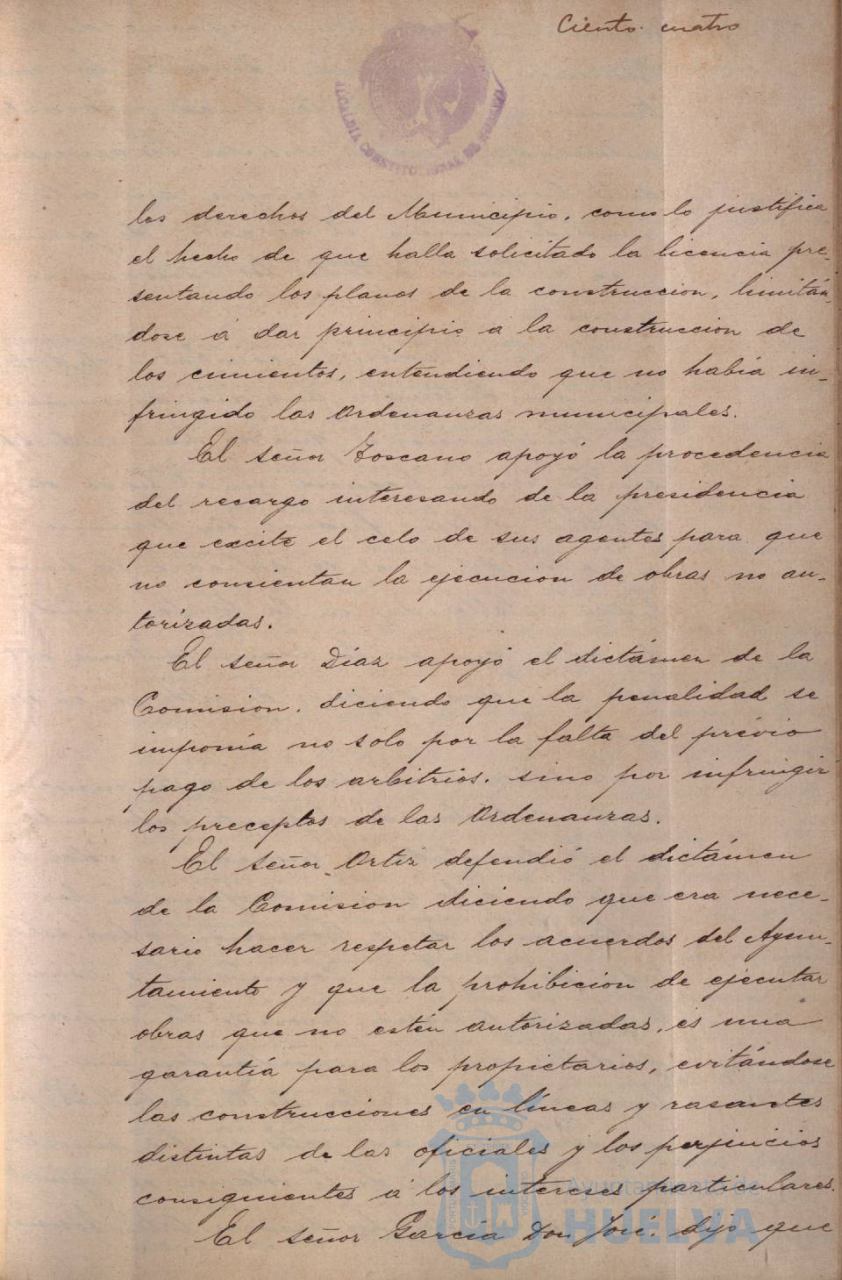 Ciento cuatro
ALCALDIA CONSTITUCIONAL DE
los derechos del Municipio, como lo justifica
el hecho de que halla solicitado la licencia pre-
sentando los planos de la construccion, limitán-
dose á dar principio á la construccion de
los cimientos, entendiendo que no había in-
fringido las Ordenanzas municipales.
El señor Toscano apoyó la procedencia
del recargo interesando de la presidencia
que excite el celo de sus agentes para que
no consientan la ejecucion de obras no au-
torizadas.
El señor Díaz apoyó el dictámen de la
Comision, diciendo que la penalidad se
imponía no solo por la falta del prévio
pago de los arbitrios, sino por infringir
los preceptos de las Ordenanzas.
El señor Ortiz defendió el dictámen
de la Comision diciendo que era nece-
sario hacer respetar los acuerdos del Ayun-
tamiento y que la prohibicion de ejecutar
obras que no estén autorizadas, es una
garantía para los propietarios, evitándose
las construcciones en líneas y rasantes
distintas de las oficiales y los perjuicios
consiguientes á los intereses particulares.
El señor García Don José, dijo que
Ayuntamiento de
HUELVA